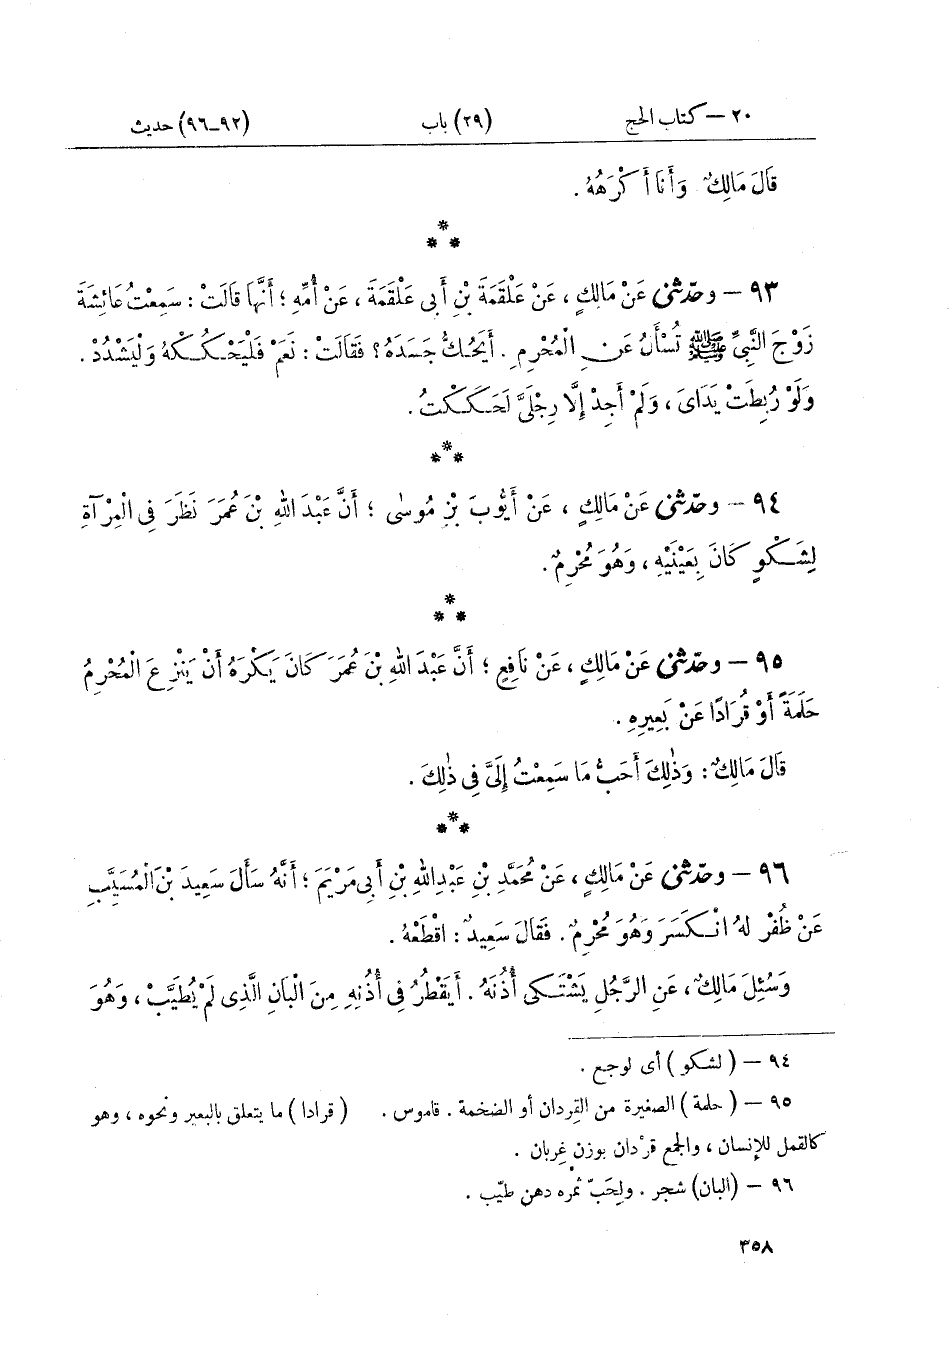 ٢٠ — كتاب الحج (٢٩) باب (٩٢–٩٦) حديث
قَالَ مَالِكٌ وَأَنَا أَكْرَهُهُ .
٩٣ — وحدّثنى عَنْ مَالِكٍ ، عَنْ عَلْقَمَةَ بْنِ أَبِى عَلْقَمَةَ ، عَنْ أُمِّهِ ؛ أَنَّهَا قَالَتْ : سَمِعْتُ عَائِشَةَ
زَوْجَ النَّبِىِّ ﷺ تُسْأَلُ عَنِ الْمُحْرِمِ . أَيَحُكُّ جَسَدَهُ ؟ فَقَالَتْ : نَعَمْ فَلْيَحْكُكْهُ وَلْيَشْدُدْ .
وَلَوْ رُبِطَتْ يَدَاىَ ، وَلَمْ أَجِدْ إِلَّا رِجْلَىَّ لَحَكَكْتُ .
٩٤ — وحدّثنى عَنْ مَالِكٍ ، عَنْ أَيُّوبَ بْنِ مُوسٰى ؛ أَنَّ عَبْدَ اللهِ بْنَ عُمَرَ نَظَرَ فِى الْمِرْآةِ
لِشَكْوٍ كَانَ بِعَيْنَيْهِ ، وَهُوَ مُحْرِمٌ .
٩٥ — وحدّثنى عَنْ مَالِكٍ ، عَنْ نَافِعٍ ؛ أَنَّ عَبْدَ اللهِ بْنَ عُمَرَ كَانَ يَكْرَهُ أَنْ يَنْزِعَ الْمُحْرِمُ
حَلَمَةً أَوْ قُرَادًا عَنْ بَعِيرِهِ .
قَالَ مَالِكٌ : وَذٰلِكَ أَحَبُّ مَا سَمِعْتُ إِلَىَّ فِى ذٰلِكَ .
٩٦ — وحدّثنى عَنْ مَالِكٍ ، عَنْ مُحَمَّدِ بْنِ عَبْدِ اللهِ بْنِ أَبِى مَرْيَمَ ؛ أَنَّهُ سَأَلَ سَعِيدَ بْنَ الْمُسَيَّبِ
عَنْ ظُفْرٍ لَهُ انْكَسَرَ وَهُوَ مُحْرِمٌ . فَقَالَ سَعِيدٌ : اقْطَعْهُ .
وَسُئِلَ مَالِكٌ ، عَنِ الرَّجُلِ يَشْتَكِى أُذُنَهُ . أَيَقْطُرُ فِى أُذُنِهِ مِنَ الْبَانِ الَّذِى لَمْ يُطَيَّبْ ، وَهُوَ
٩٤ — ( لشكو ) أى لوجع .
٩٥ — ( حلمة ) الصغيرة من القِردان أو الضخمة . قاموس . ( قرادا ) ما يتعلق بالبعير ونحوه ، وهو
كالقمل للإنسان ، والجمع قرْدان بوزن غِربان .
٩٦ — (البان) شجر . ولِحَبّ ثمره دهن طيّب .
٣٥٨